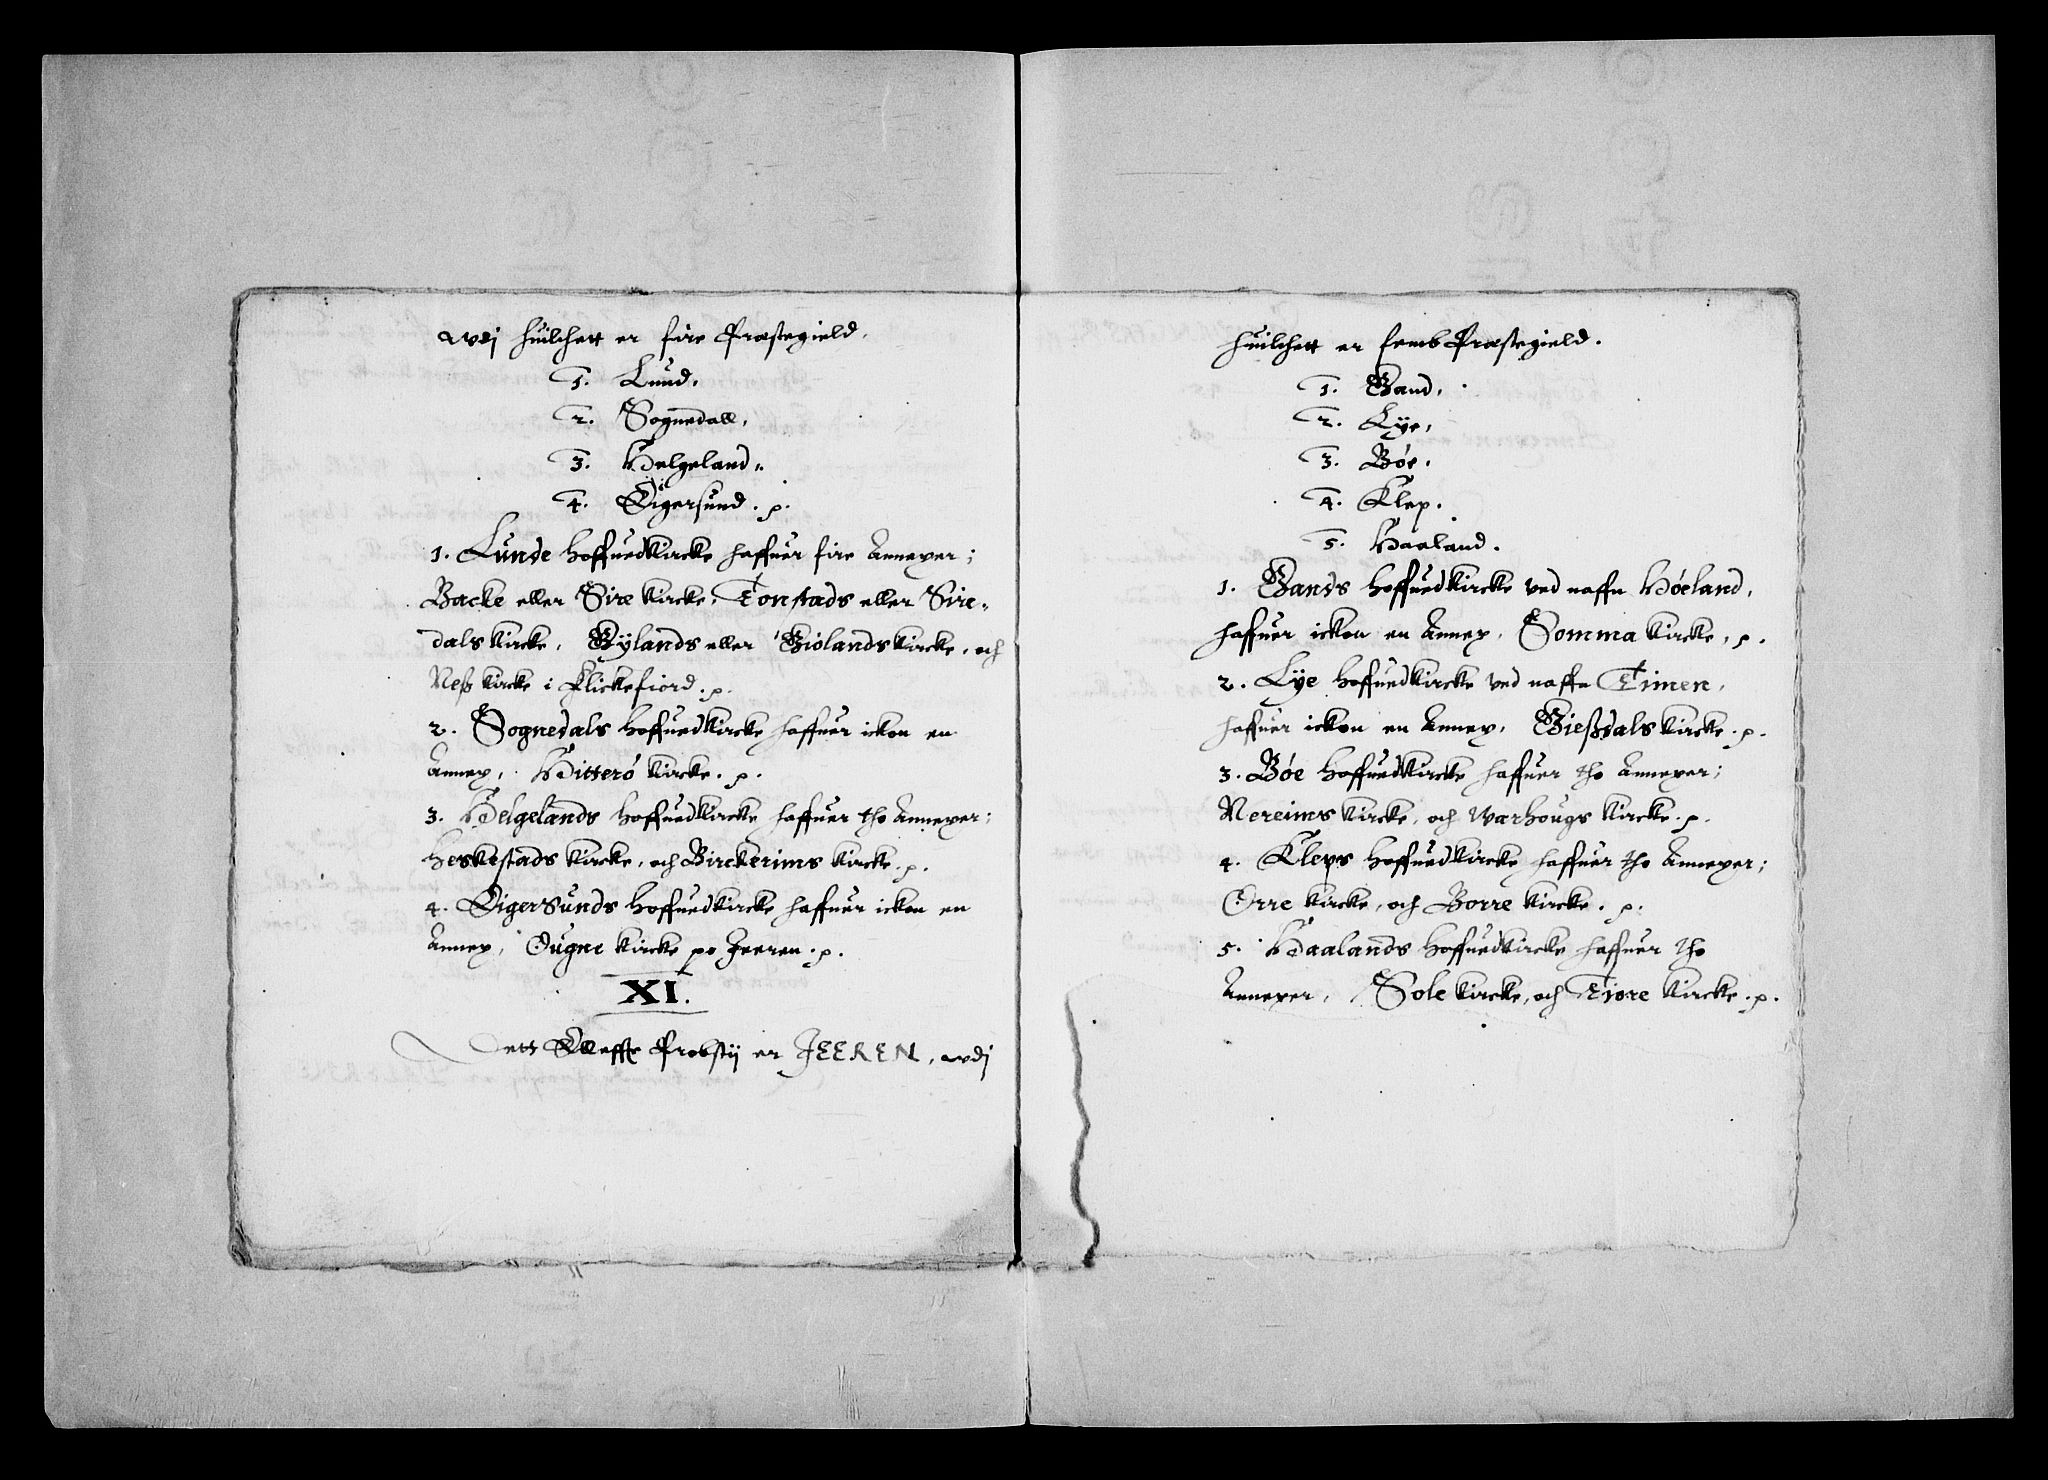 wdj huilchett er fire Præstegield.
1. Lund.
2. Sognedall.
3. Helgeland.
4. Öigersund. p.
1. Lunde Hoffuedkircke haffuer fire Annexer;
Backe eller Sire kircke, Tonstads eller Sire-
dals kircke, Gylands eller Giolands kircke, och
Neß kircke i Flickefiord. p.
2. Sognedals Hoffuedkircke haffuer ickon en
Annex, Hitterö kircke. p.
3. Helgelands Hoffuedkircke haffuer tho Annexer;
Heskestads kircke, och Birckerims kircke. p.
4. Öigersunds Hoffuedkircke haffuer ickon en
Annex, Ougne kircke po Jeeren. p.
XI.
Dett Elleffte Probstij er JEEREN, wdj
huilchett er femb Præstegield.
1. Gand.
2. Lye.
3. Bóe.
4. Klep.
5. Haaland.
1. Gands Hoffuedkircke ved naffn Hóeland,
haffuer ickon en Annex, Somma kircke, p.
2. Lÿe Hoffuedkircke ved naffn Timen,
haffuer ickon en Annex, Gießdals kircke. p.
3. Bóe Hoffuedkircke haffuer tho Annexer;
Nereims kircke, och Warhougs kircke. p.
4. Kleps Hoffuedkircke haffuer tho Annexer;
Orre kircke, och Borre kircke. p.
5. Haalands Hoffuedkircke haffuer tho
Annexer, Sole kircke, och Tiore kircke. p.